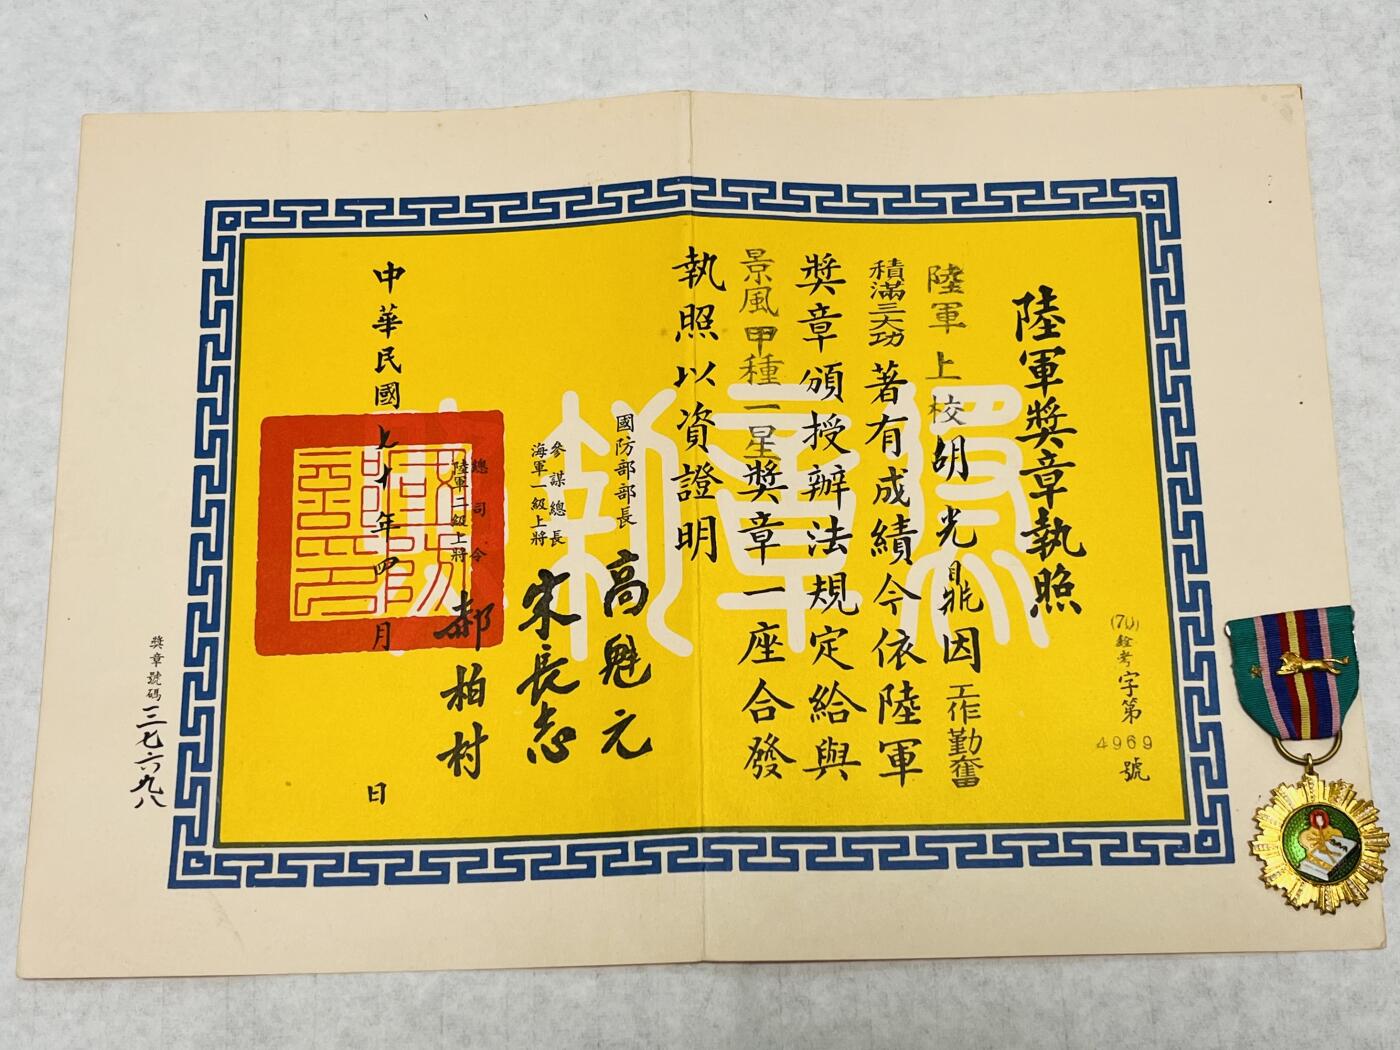 陸軍獎章執照
(70)銓考字第4969號
陸軍上校胡光鼎因工作勤奮
積滿三大功著有成績今依陸軍
獎章頒授辦法規定給與
景風甲種一星獎章一座合發
執照以資證明
國防部部長 高魁元
參謀總長
海軍一級上將 宋長志
總司令
陸軍二級上將 郝柏村
中華民國七十年四月 日
獎章號碼 三七六九八